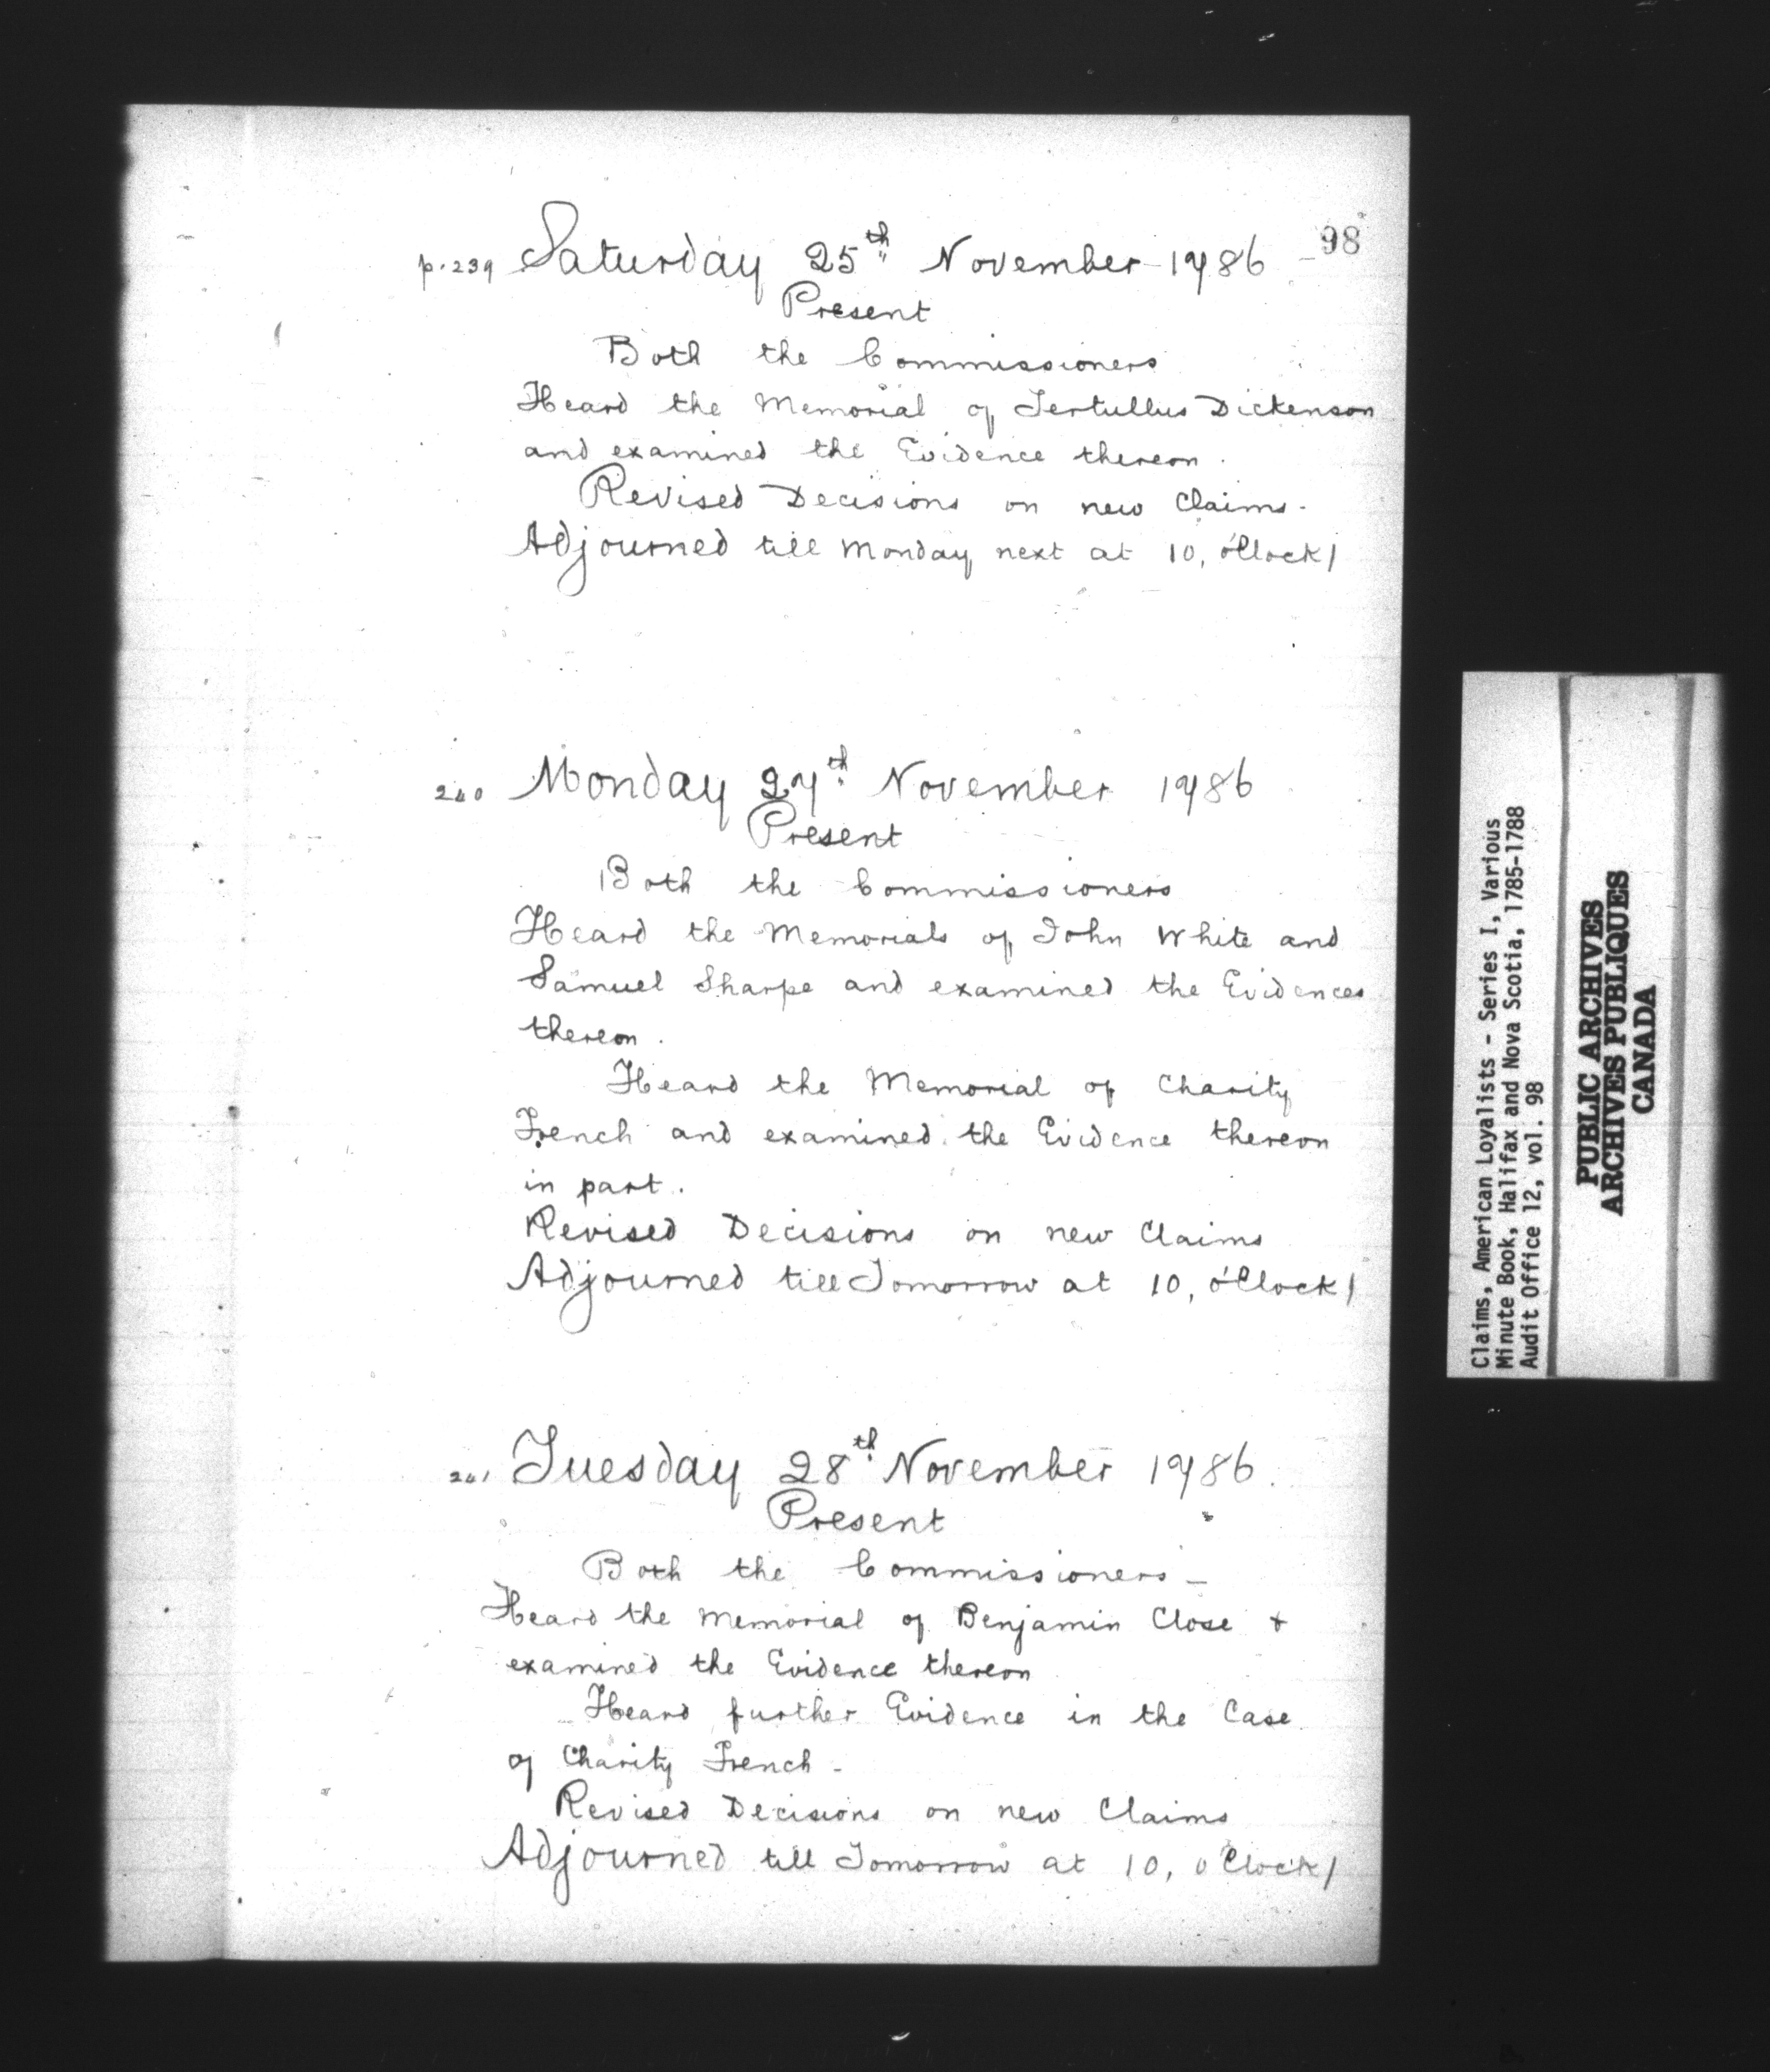 98
p. 239 Saturday 25th November 1786
Present
Both the Commissioners
Heard the Memorial of Tertullus Dickenson
and examined the Evidence thereon.
Revised Decisions on new Claims.
Adjourned till Monday next at 10, o'Clock/
240 Monday 27th November 1786
Present
Both the Commissioners
Heard the Memorials of John White and
Samuel Sharpe and examined the Evidences
thereon.
Heard the Memorial of Charity
French and examined the Evidence thereon
in part.
Revised Decisions on new Claims
Adjourned till Tomorrow at 10, o'Clock/
241 Tuesday 28th November 1786.
Present
Both the Commissioners –
Heard the Memorial of Benjamin Close +
examined the Evidence thereon
Heard further Evidence in the Case
of Charity French –
Revised Decisions on new Claims
Adjourned till Tomorrow at 10, o'Clock/
Claims, American Loyalists - Series I, Various
Minute Book, Halifax and Nova Scotia, 1785-1788
Audit Office 12, vol. 98
PUBLIC ARCHIVES
ARCHIVES PUBLIQUES
CANADA